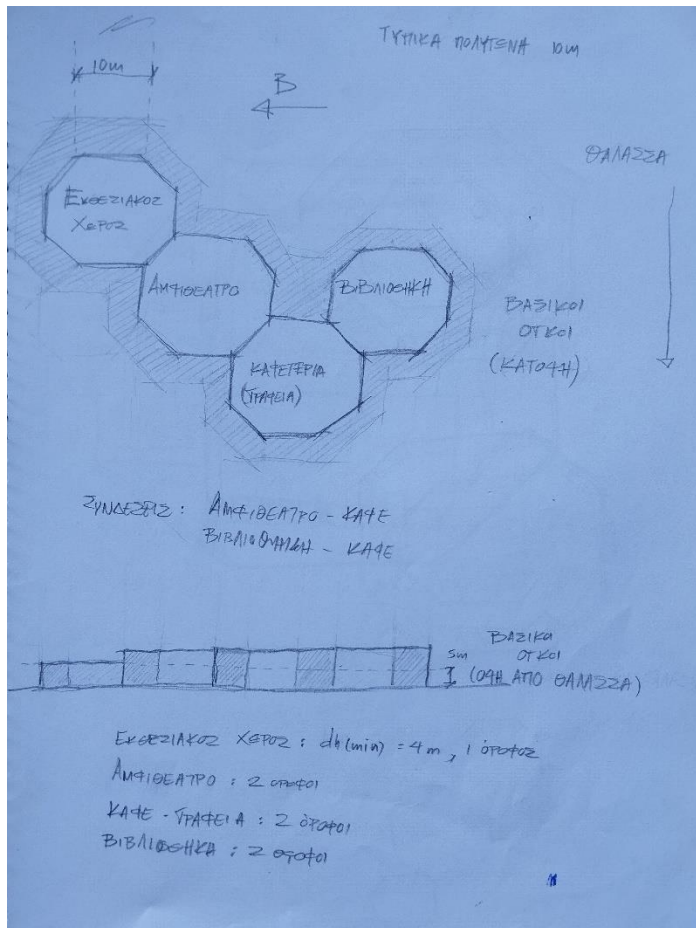 ΤΥΠΙΚΑ ΠΟΛΥΓΩΝΑ 10m
10m
Β
ΘΑΛΑΣΣΑ
ΕΚΘΕΣΙΑΚΟΣ
ΧΩΡΟΣ
ΑΜΦΙΘΕΑΤΡΟ
ΒΙΒΛΙΟΘΗΚΗ
ΚΑΦΕΤΕΡΙΑ
(ΓΡΑΦΕΙΑ)
ΒΑΣΙΚΟΙ
ΟΓΚΟΙ
(ΚΑΤΟΨΗ)
ΣΥΝΔΕΣΕΙΣ: ΑΜΦΙΘΕΑΤΡΟ - ΚΑΦΕ
ΒΙΒΛΙΟΘΗΚΗ - ΚΑΦΕ
5m
ΒΑΣΙΚΟΙ
ΟΓΚΟΙ
(ΟΨΗ ΑΠΟ ΘΑΛΑΣΣΑ)
ΕΚΘΕΣΙΑΚΟΣ ΧΩΡΟΣ: dh(min) = 4m, 1 ΌΡΟΦΟΣ
ΑΜΦΙΘΕΑΤΡΟ: 2 ΟΡΟΦΟΙ
ΚΑΦΕ - ΓΡΑΦΕΙΑ: 2 ΌΡΟΦΟΙ
ΒΙΒΛΙΟΘΗΚΑ: 2 ΟΡΟΦΟΙ